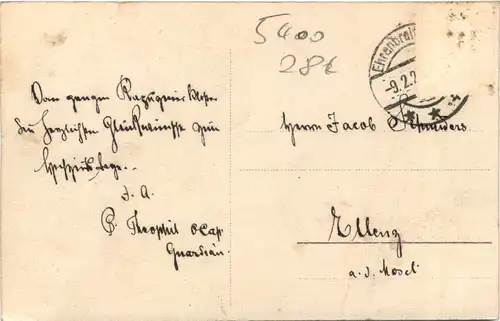 5400
28€
Ehrenbrei
-9.2.2
Vom ganzen Kapuziner Kloster
die herzlichsten Glückwünsche zum
Hochzeitstage.
I. A.
P. Theophil O. Cap.
Guardian.
Herrn Jacob Schneiders
Ellenz
a. d. Mosel